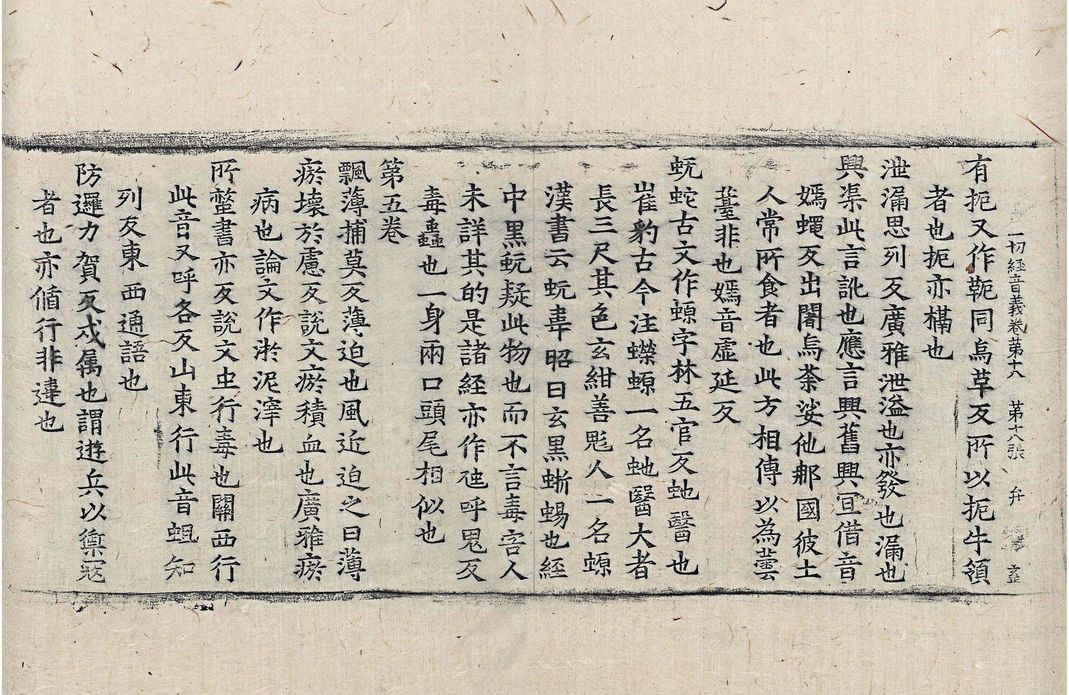 一切經音義卷第十八 第十八張 弁
有扼又作軛同烏革反所以扼牛領
者也扼亦槅也
泄漏思列反廣雅泄溢也亦發也漏也
興渠此言訛也應言興舊興宣借音
嫣蠅反出闍烏荼娑他郍國彼土
人常所食者也此方相傳以為蕓
薹非也嫣音虛延反
蚖蛇古文作螈字林五官反虵醫也
崔豹古今注蠑螈一名虵醫大者
長三尺其色玄紺善魅人一名螈
漢書云蚖韋昭曰玄黑蜥蜴也經
中黑蚖疑此物也而不言毒害人
未詳其的是諸經亦作虺呼鬼反
毒蟲也一身兩口頭尾相似也
第五卷
飄薄捕莫反薄迫也風近迫之曰薄
瘀壞於慮反說文瘀積血也廣雅瘀
病也論文作淤泥滓也
所螫書亦反說文虫行毒也關西行
此音又呼各反山東行此音蛆知
列反東西通語也
防邏力賀反戍属也謂遊兵以禦寇
者也亦循行非違也